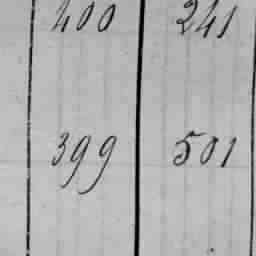 400 241
399 501